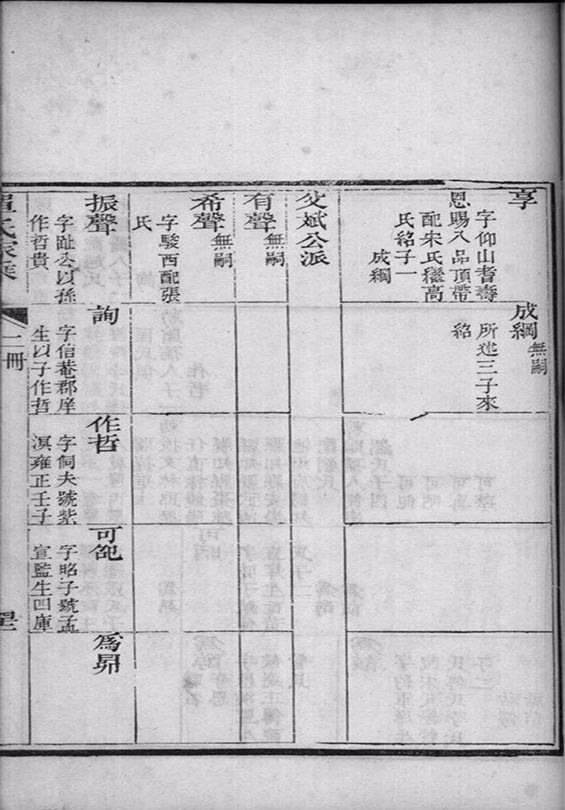 享
字仰山耆壽
恩賜八品頂帶
配宋氏繼高
氏紹子一
成綱
成綱
無嗣
所述三子來
紹
文斌公派
有聲
無嗣
希聲
無嗣
字駿西配張
氏
振聲
字趾公以孫
作哲貴
詢
字信菴郡庠
生以子作哲
作哲
字侗夫號紫
溟雍正壬子
可
字昭子號孟
宣監生四庫
為昴
氏家乘
二冊